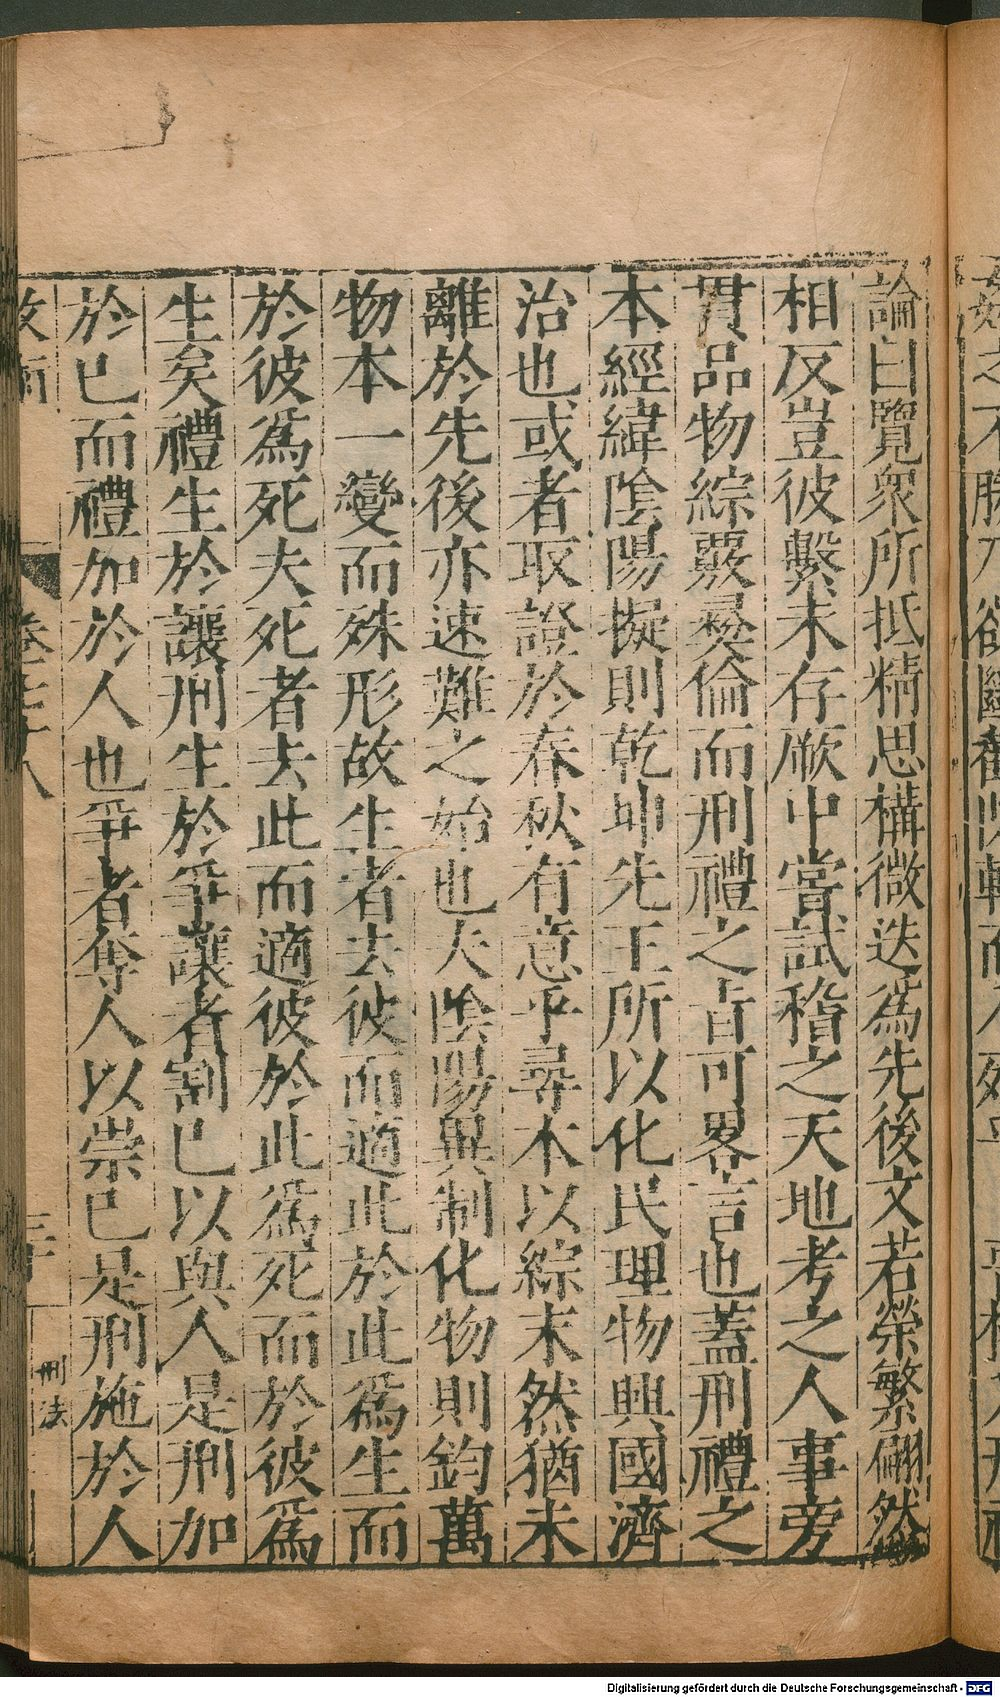 論曰覽衆所抵精思構微迭爲先後文若縈繫翩然
相反豈彼繫未存厥中嘗試稽之天地考之人事旁
貫品物綜覈彝倫而刑禮之旨可畧言也蓋刑禮之
本經緯陰陽擬則乾坤先王所以化民理物興國濟
治也或者取證於春秋有意乎尋本以綜末然猶未
離於先後亦速難之始也夫陰陽異制化物則鈞萬
物本一變而殊形故生者去彼而適此於此爲生而
於彼爲死夫死者去此而適彼於此爲死而於彼爲
生矣禮生於讓刑生於爭讓者割已以與人是刑加
於已而禮加於人也爭者奪人以崇已是刑施於人
刑法
Digitalisierung gefördert durch die Deutsche Forschungsgemeinschaft - DFG